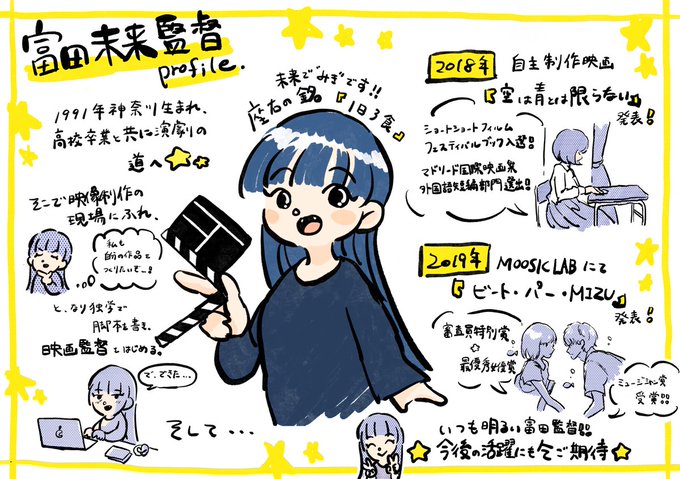 富田未来監督
profile.
1991年神奈川生まれ、
高校卒業と共に演劇の
道へ
そこで映像制作の
現場にふれ、
私も
自分の作品を
つくりたいぞー!
と、なり独学で
脚本を書き、
映画監督をはじめる。
で、できた…
そして…
未来でみきです!!
座右の銘
『1日3食』
2018年 自主制作映画
『空は青とは限らない』
発表!
ショートショートフィルム
フェスティバルブック入選!!
マドリード国際映画祭
外国語短編部門選出!!
2019年 MOOSIC LABにて
『ビート・パー・MIZU』
発表!
審査員特別賞
最優秀女優賞
ミュージシャン賞
受賞!!
いつも明るい富田監督!!
今後の活躍にも今ご期待